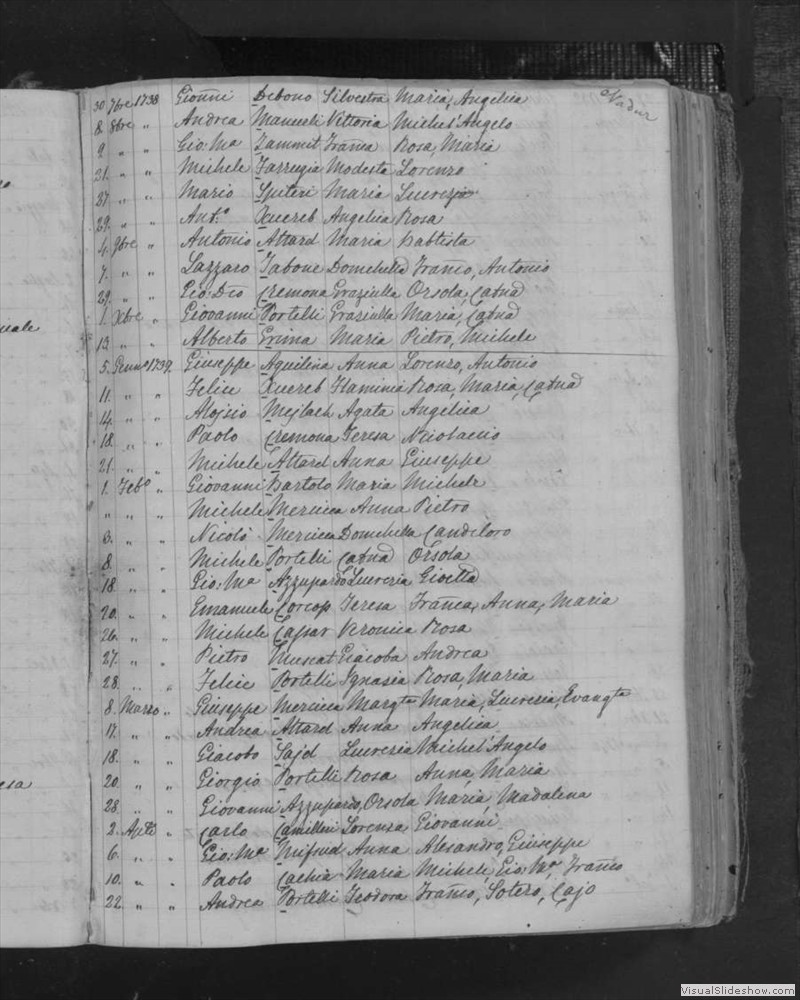 Nadur
30. 7bre 1738 Gionni Debono Silvestra Maria, Angelica
8. 8bre " Andrea Manueli Vittoria Michel'Angelo
9. " " Gio: Ma Zammit Franca Rosa, Maria
21. " " Michele Farrugia Modesta Lorenzo
27. " " Mario Spiteri Maria Lucrezia
29. " " Ant.o Xuereb Angelica Rosa
4. 9bre " Antonio Attard Maria Battista
7. " " Lazzaro Tabone Domchella Franco, Antonio
29. " " Gio: Dco Cremona Graziulla Orsola, Catna
1. Xbre " Giovanni Portelli Graziulla Maria, Catna
13. " " Alberto Grima Maria Pietro, Michele
5. Genno 1739 Giuseppe Aquilina Anna Lorenzo, Antonio
11. " " Felice Xuereb Flaminia Rosa, Maria, Catna
14. " " Alojsio Mejlach Agata Angelica
18. " " Paolo Cremona Teresa
21. " " Michele Attard Anna Giuseppe
1. Febo " Giovanni Bartolo Maria Michele
" " " Michele Mercieca Anna Pietro
3. " " Nicolò Mercieca Domchella Candeloro
8. " " Michele Portelli Catna Orsola
18. " " Gio: Ma Azzupardo Lucrezia Gioetta
20. " " Emanuele Corcop Teresa Franca, Anna, Maria
26. " " Michele Cassar Veronica Rosa
27. " " Pietro Muscat Giacoba Andrea
28. " " Felice Portelli Ignasia Rosa, Maria
8. Marzo " Giuseppe Mercieca Margta Maria, Lucresia, Evangta
17. " " Andrea Attard Anna Angelica
18. " " Giacobo Sajd Lucrezia Michel'Angelo
20. " " Giorgio Portelli Rosa Anna, Maria
28. " " Giovanni Azzupardo, Orsola Maria, Madalena
2. Aple " Carlo Camilleri Lorenza Giovanni
6. " " Gio: Ma Mifsud Anna Alesandro, Giuseppe
10. " " Paolo Cachia Maria Michele, Gio: Ma, Franco
22. " " Andrea Portelli Teodora Franco, Sotero, Cajo
esa
VisualSlideshow.com